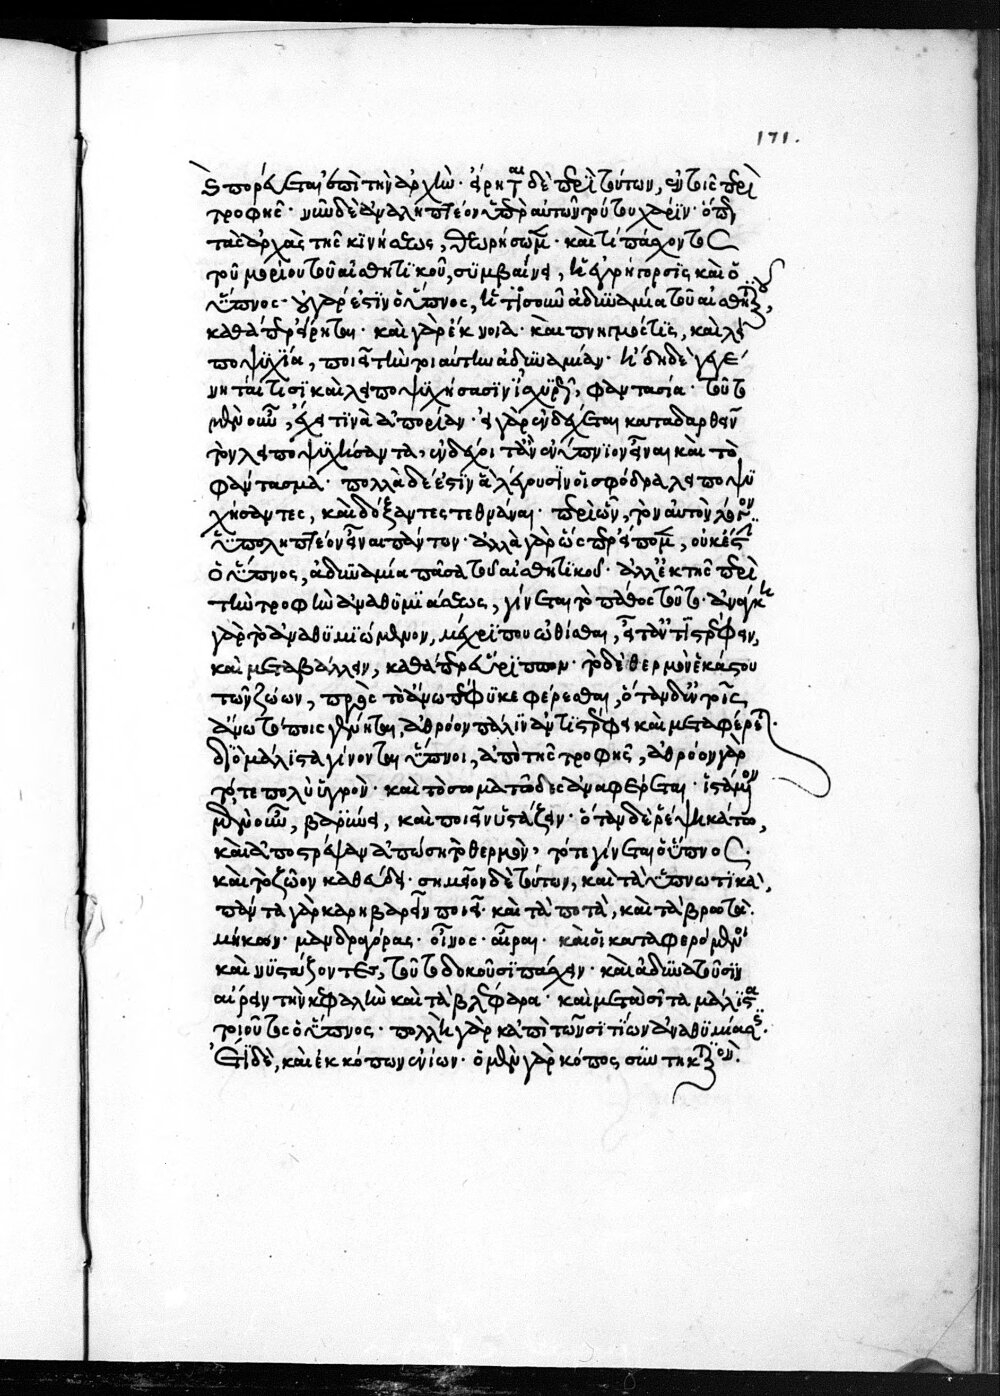 171.
πορεύεται ἐπὶ τὴν ἀρχήν· εἴρηται δὲ περὶ τούτων, ἐν τοῖς περὶ
τροφῆς· νῦν δὲ ἀναληπτέον ὑπὲρ αὐτῶν τούτου χάριν· ὅπως
τὰς ἀρχὰς τῆς κινήσεως, θεωρήσωμεν· καὶ τί πάσχοντος
τοῦ μορίου τοῦ αἰσθητικοῦ, συμβαίνει ἡ ἐγρήγορσις καὶ ὁ
ὕπνος· οὐ γάρ ἐστιν ὁ ὕπνος, ἡτισοῦν ἀδυναμία τοῦ αἰσθητικοῦ,
καθάπερ εἴρηται· καὶ γὰρ ἔκνοια· καὶ πνιγμός τις, καὶ λει
ποψυχία, ποιεῖ τὴν τοιαύτην ἀδυναμίαν· ἤδη δὲ γεγέ
νηταί τισι καὶ λειποψυχήσασιν ἰσχυρῶς, φαντασία· τοῦτο
μὲν οὖν, ἔχει τινὰ ἀπορίαν· εἰ γὰρ ἐνδέχεται καταδαρθεῖν
τὸν λειποψυχήσαντα, ἐνδέχοιτ' ἂν ἐνύπνιον εἶναι καὶ τὸ
φάντασμα· πολλὰ δέ ἐστιν ἃ λέγουσιν οἱ σφόδρα λειποψυ
χήσαντες, καὶ δόξαντες τεθνάναι· περὶ ὧν, τὸν αὐτὸν λόγον
ὑποληπτέον εἶναι πάντων· ἀλλὰ γὰρ ὥσπερ εἴπομεν, οὐκ ἔστιν
ὁ ὕπνος, ἀδυναμία πᾶσα τοῦ αἰσθητικοῦ· ἀλλ' ἐκ τῆς περὶ
τὴν τροφὴν ἀναθυμιάσεως, γίνεται τὸ πάθος τοῦτο· ἀνάγκη
γὰρ τὸ ἀναθυμιώμενον, μέχρι που ὠθεῖσθαι, εἶτ' ἀντιστρέφειν,
καὶ μεταβάλλειν, καθάπερ εὔριπον· τὸ δὲ θερμὸν ἑκάστου
τῶν ζώων, πρὸς τὸ ἄνω πέφυκε φέρεσθαι, ὅταν δ' ἐν τοῖς
ἄνω τόποις γένηται, ἀθρόον πάλιν ἀντιστρέφει καὶ μεταφέρεται·
διὸ μάλιστα γίνονται ὕπνοι, ἀπὸ τῆς τροφῆς, ἀθρόον γὰρ
τότε πολὺ ὑγρὸν· καὶ τὸ σωματῶδες ἀναφέρεται· ἱστάμενον
μὲν οὖν, βαρύνει, καὶ ποιεῖ νυστάζειν· ὅταν δὲ ῥέψῃ κάτω,
καὶ ἀποστρέψαν ἀπώσῃ τὸ θερμὸν, τότε γίνεται ὁ ὕπνος·
καὶ τὸ ζῶον καθεύδει· σημεῖον δὲ τούτων, καὶ τὰ ὑπνωτικά,
πάντα γὰρ καρηβαρεῖν ποιεῖ· καὶ τὰ ποτὰ, καὶ τὰ βρωτὰ·
μήκων· μανδραγόρας· οἶνος· αἶραι· καὶ οἱ καταφερόμενοι
καὶ νυστάζοντες, τοῦτο δοκοῦσι πάσχειν· καὶ ἀδυνατοῦσιν
αἴρειν τὴν κεφαλὴν καὶ τὰ βλέφαρα· καὶ μετὰ σῖτα μάλιστα
τοιοῦτος ὁ ὕπνος· πολλὴ γὰρ κἀπὶ τῶν σιτίων ἀναθυμίασις·
Ἔτι δὲ, καὶ ἐκ κόπων ἐνίων· ὁ μὲν γὰρ κόπος συντηκτικόν·